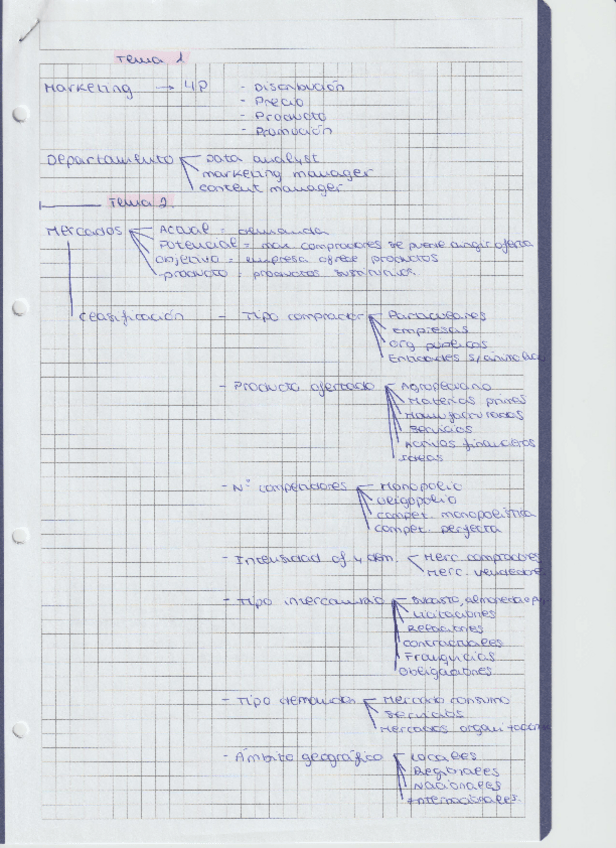 Tema 1
Marketing → 4P - Distribución
- Precio
- Producto
- Promoción
Departamento Data analyst
marketing manager
content manager
Tema 2.
Mercados Actual = demanda
Potencial = max compradores se puede dirigir oferta
Objetivo = empresa ofrece productos
producto = productos sustitutivos
Clasificación - Tipo comprador Particulares
empresas
Org públicas
Entidades s/
- Producto ofertado Agropecuario
Materias primas
Manufacturados
Servicios
Activos financieros
Ideas
- Nº competidores Monopolio
Oligopolio
compet. monopolistica
compet. perfecta
- Intensidad of y dem. Merc. compradores
Merc. vendedores
- Tipo intercambio Subasta,
Licitaciones
Relaciones
Contractuales
Franquicias
Obligaciones
- Tipo demanda Mercado consumo
Servicios
Mercados
- Ámbito geográfico Locales
Regionales
Nacionales
Internacionales.